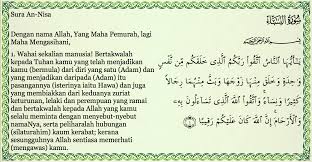 Sura An-Nisa
سُورَةُ النِّسَاءِ
Dengan nama Allah, Yang Maha Pemurah, lagi
Maha Mengasihani,
بِسْمِ اللَّهِ الرَّحْمَٰنِ الرَّحِيمِ
1. Wahai sekalian manusia! Bertakwalah
kepada Tuhan kamu yang telah menjadikan
kamu (bermula) dari diri yang satu (Adam) dan
yang menjadikan daripada (Adam) itu
pasangannya (isterinya iaitu Hawa) dan juga
yang membiakkan dari keduanya zuriat
keturunan, lelaki dan perempuan yang ramai
dan bertakwalah kepada Allah yang kamu
selalu meminta dengan menyebut-nyebut
namaNya, serta peliharalah hubungan
(silaturahim) kaum kerabat; kerana
sesungguhnya Allah sentiasa memerhati
(mengawas) kamu.
يَا أَيُّهَا النَّاسُ اتَّقُوا رَبَّكُمُ الَّذِي خَلَقَكُم مِّن نَّفْسٍ
وَاحِدَةٍ وَخَلَقَ مِنْهَا زَوْجَهَا وَبَثَّ مِنْهُمَا رِجَالًا
كَثِيرًا وَنِسَاءً ۚ وَاتَّقُوا اللَّهَ الَّذِي تَسَاءَلُونَ بِهِ
وَالْأَرْحَامَ ۚ إِنَّ اللَّهَ كَانَ عَلَيْكُمْ رَقِيبًا ۝١